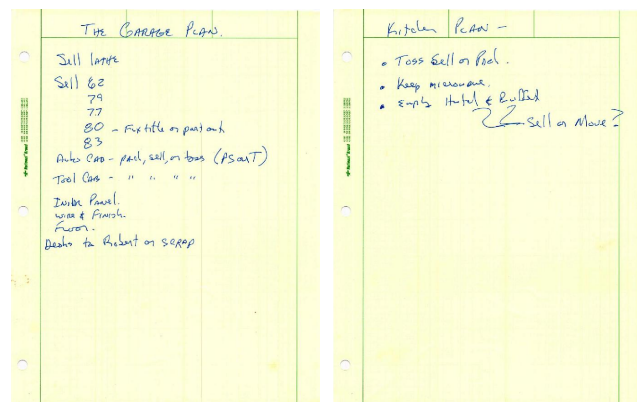 THE GARAGE PLAN.
Sell LATHE
Sell 62
79
77
80 - Fix title or part out
83
Auto CAB - pack, sell, or toss (PS or T)
Tool CAB - " " " "
Panel.
WIRE & FINISH.
Floor.
Desks to Robert or SCRAP
Kitchen PLAN -
• Toss Sell or Pack.
• Keep microwave.
• Empty Hutch & Buffet
Sell or Move?